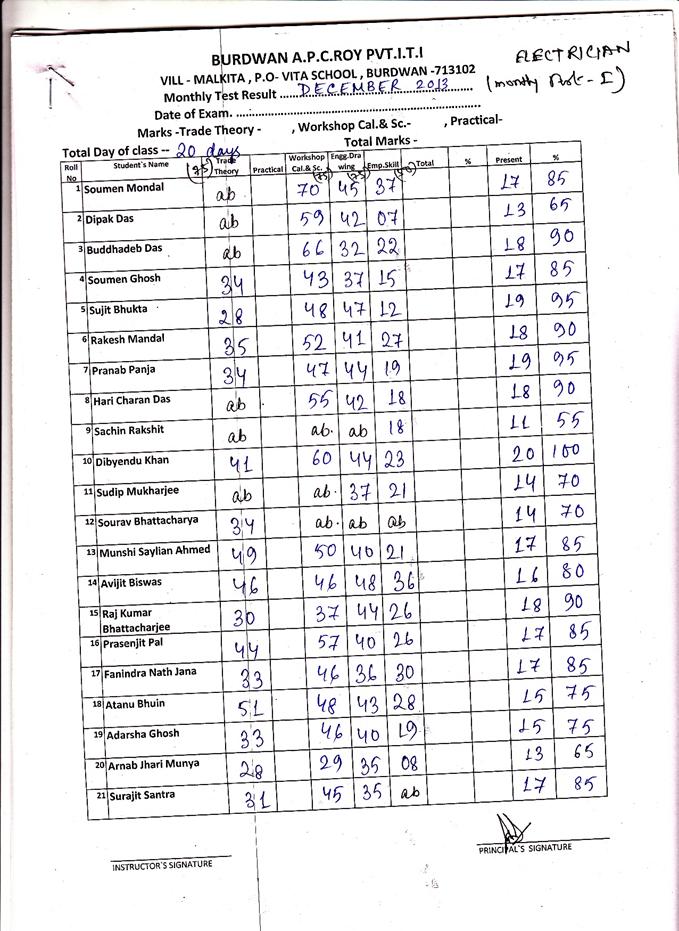 BURDWAN A.P.C.ROY PVT.I.T.I
ELECTRICIAN
VILL - MALKITA , P.O- VITA SCHOOL , BURDWAN -713102
Monthly Test Result ...DECEMBER 2013...
(monthly - I)
Date of Exam. ...
Marks -Trade Theory - , Workshop Cal.& Sc.- , Practical-
Total Day of class -- 20 days Total Marks -
Roll No Student`s Name (75) Trade Theory Practical Workshop Cal.& Sc. (75) Engg.Dra wing (75) Emp.Skill (50) Total % Present %
1 Soumen Mondal ab 70 45 37 17 85
2 Dipak Das ab 59 42 07 13 65
3 Buddhadeb Das ab 66 32 22 18 90
4 Soumen Ghosh 34 43 37 15 17 85
5 Sujit Bhukta 28 48 47 12 19 95
6 Rakesh Mandal 35 52 41 27 18 90
7 Pranab Panja 34 47 44 19 19 95
8 Hari Charan Das ab 55 42 18 18 90
9 Sachin Rakshit ab ab. ab 18 11 55
10 Dibyendu Khan 41 60 44 23 20 100
11 Sudip Mukharjee ab ab. 37 21 14 70
12 Sourav Bhattacharya 34 ab. ab ab 14 70
13 Munshi Saylian Ahmed 49 50 40 21 17 85
14 Avijit Biswas 46 46 48 36 16 80
15 Raj Kumar Bhattacharjee 30 37 44 26 18 90
16 Prasenjit Pal 44 57 40 26 17 85
17 Fanindra Nath Jana 33 46 36 30 17 85
18 Atanu Bhuin 51 48 43 28 15 75
19 Adarsha Ghosh 33 46 40 19 15 75
20 Arnab Jhari Munya 28 29 35 08 13 65
21 Surajit Santra 31 45 35 ab 17 85
PRINCIPAL'S SIGNATURE
INSTRUCTOR`S SIGNATURE